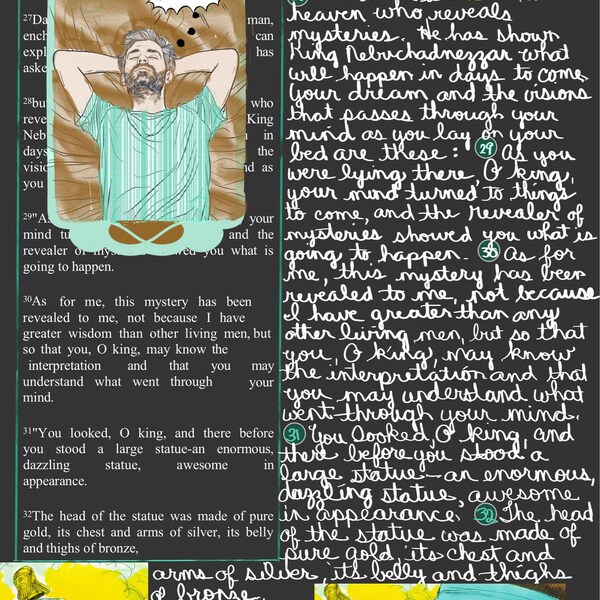 27Da man,
ench can
expl has
aske
28but who
reve King
Neb in
days the
visio nd as
you
29"As your
mind tu and the
revealer of my wed you what is
going to happen.
30As for me, this mystery has been
revealed to me, not because I have
greater wisdom than other living men, but
so that you, O king, may know the
interpretation and that you may
understand what went through your
mind.
31"You looked, O king, and there before
you stood a large statue-an enormous,
dazzling statue, awesome in
appearance.
32The head of the statue was made of pure
gold, its chest and arms of silver, its belly
and thighs of bronze,
heaven who reveals
mysteries. He has shown
King Nebuchadnezzar what
will happen in days to come.
Your dream and the visions
that passes through your
mind as you lay on your
bed are these: 29 As you
were lying there, O king,
your mind turned to things
to come, and the revealer of
mysteries showed you what is
going to happen. 30 As for
me, this mystery has been
revealed to me, not because
I have greater than any
other living men, but so that
you, O king, may know
the interpretation and that
you may understand what
went through your mind.
31 You looked, O king, and
there before you stood a
large statue—an enormous,
dazzling statue, awesome
in appearance. 32 The head
of the statue was made of
pure gold, its chest and
arms of silver, its belly and thighs
of bronze.